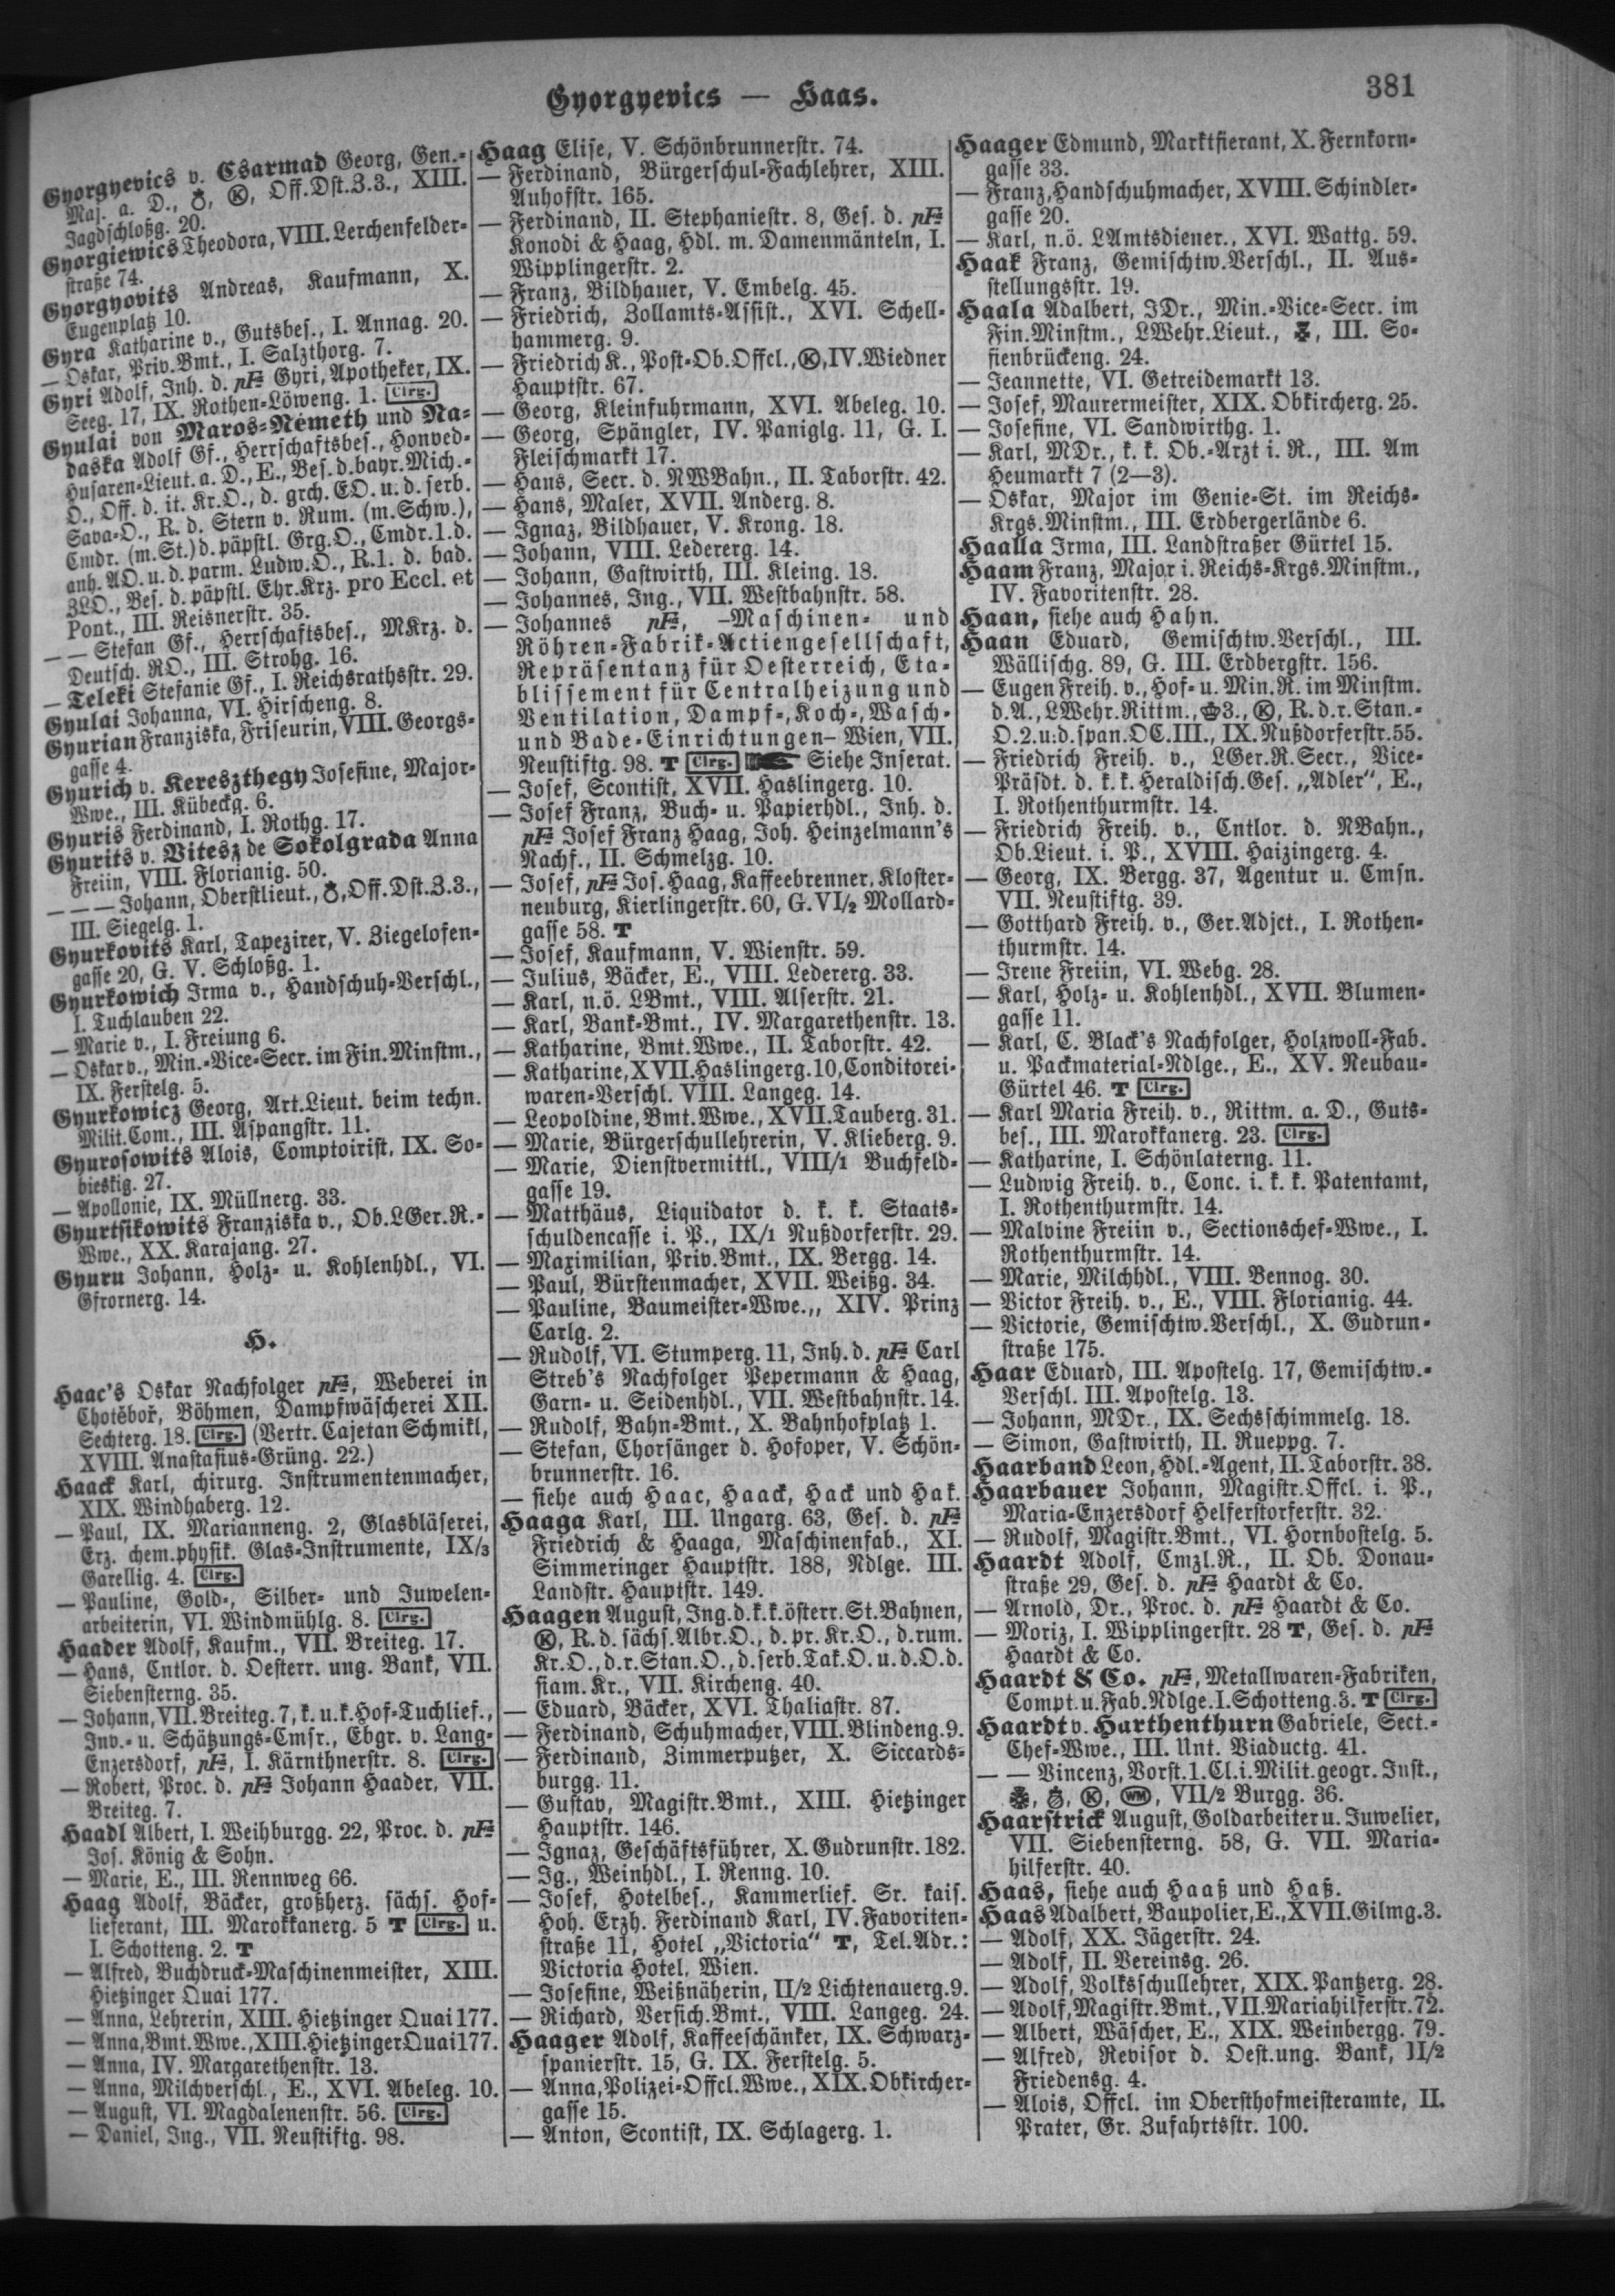 Gyorgyevics — Haas.
381
Gyorgyevics v. Csarmad Georg, Gen.-
Maj. a. D., Off.Dst.Z.3., XIII.
Jagdschloßg. 20.
Gyorgiewics Theodora, VIII. Lerchenfelder-
straße 74.
Gyorgyovits Andreas, Kaufmann, X.
Eugenplatz 10.
Gyra Katharine v., Gutsbes., I. Annag. 20.
— Oskar, Priv.Bmt., I. Salzthorg. 7.
Gyri Adolf, Inh. d. pF Gyri, Apotheker, IX.
Seeg. 17, IX. Rothen-Löweng. 1. Clrg.
Gyulai von Maros-Németh und Na-
daska Adolf Gf., Herrschaftsbes., Honved-
Husaren-Lieut. a. D., E., Bes. d. bayr. Mich.-
O., Off. d. it. Kr.O., d. grch. EO. u. d. serb.
Sava-O., R. d. Stern v. Rum. (m. Schw.),
Cmdr. (m. St.) d. päpstl. Grg.O., Cmdr. 1. d.
anh. AO. u. d. parm. Ludw.O., R.1. d. bad.
ZLO., Bes. d. päpstl. Ehr.Krz. pro Eccl. et
Pont., III. Reisnerstr. 35.
— — Stefan Gf., Herrschaftsbes., MKrz. d.
Deutsch. RO., III. Strohg. 16.
— Teleki Stefanie Gf., I. Reichsrathsstr. 29.
Gyulai Johanna, VI. Hirscheng. 8.
Gyurian Franziska, Friseurin, VIII. Georgs-
gasse 4.
Gyurich v. Kereszthegy Josefine, Major-
Wwe., III. Kübeckg. 6.
Gyuris Ferdinand, I. Rothg. 17.
Gyurits v. Vitesz de Sokolgrada Anna
Freiin, VIII. Florianig. 50.
— — — Johann, Oberstlieut., Off.Dst.Z.3.,
III. Siegelg. 1.
Gyurkovits Karl, Tapezirer, V. Ziegelofen-
gasse 20, G. V. Schloßg. 1.
Gyurkowich Irma v., Handschuh-Verschl.,
I. Tuchlauben 22.
— Marie v., I. Freiung 6.
— Oskar v., Min.-Vice-Secr. im Fin.Minstm.,
IX. Ferstelg. 5.
Gyurkowicz Georg, Art.Lieut. beim techn.
Milit.Com., III. Aspangstr. 11.
Gyurosowits Alois, Comptoirist, IX. So-
bieskig. 27.
— Apollonie, IX. Müllnerg. 33.
Gyurtsikowits Franziska v., Ob.LGer.R.-
Wwe., XX. Karajang. 27.
Gyuru Johann, Holz- u. Kohlenhdl., VI.
Gfrornerg. 14.
H.
Haac's Oskar Nachfolger pF, Weberei in
Chotěboř, Böhmen, Dampfwäscherei XII.
Sechterg. 18. Clrg. (Vertr. Cajetan Schmikl,
XVIII. Anastasius-Grüng. 22.)
Haack Karl, chirurg. Instrumentenmacher,
XIX. Windhaberg. 12.
— Paul, IX. Marianneng. 2, Glasbläserei,
Erz. chem.physik. Glas-Instrumente, IX/3
Garellig. 4. Clrg.
— Pauline, Gold-, Silber- und Juwelen-
arbeiterin, VI. Windmühlg. 8. Clrg.
Haader Adolf, Kaufm., VII. Breiteg. 17.
— Hans, Cntlor. d. Oesterr. ung. Bank, VII.
Siebensterng. 35.
— Johann, VII. Breiteg. 7, k. u. k. Hof-Tuchlief.,
Inv.- u. Schätzungs-Cmsr., Ebgr. v. Lang-
Enzersdorf, pF, I. Kärnthnerstr. 8. Clrg.
— Robert, Proc. d. pF Johann Haader, VII.
Breiteg. 7.
Haadl Albert, I. Weihburgg. 22, Proc. d. pF
Jos. König & Sohn.
— Marie, E., III. Rennweg 66.
Haag Adolf, Bäcker, großherz. sächs. Hof-
lieferant, III. Marokkanerg. 5 T Clrg. u.
I. Schotteng. 2. T
— Alfred, Buchdruck-Maschinenmeister, XIII.
Hietzinger Quai 177.
— Anna, Lehrerin, XIII. Hietzinger Quai 177.
— Anna, Bmt.Wwe., XIII. Hietzinger Quai 177.
— Anna, IV. Margarethenstr. 13.
— Anna, Milchverschl., E., XVI. Abeleg. 10.
— August, VI. Magdalenenstr. 56. Clrg.
— Daniel, Ing., VII. Neustiftg. 98.
Haag Elise, V. Schönbrunnerstr. 74.
— Ferdinand, Bürgerschul-Fachlehrer, XIII.
Auhofstr. 165.
— Ferdinand, II. Stephaniestr. 8, Ges. d. pF
Konodi & Haag, Hdl. m. Damenmänteln, I.
Wipplingerstr. 2.
— Franz, Bildhauer, V. Embelg. 45.
— Friedrich, Zollamts-Assist., XVI. Schell-
hammerg. 9.
— Friedrich K., Post-Ob.Offcl., K, IV. Wiedner
Hauptstr. 67.
— Georg, Kleinfuhrmann, XVI. Abeleg. 10.
— Georg, Spängler, IV. Paniglg. 11, G. I.
Fleischmarkt 17.
— Hans, Secr. d. NWBahn., II. Taborstr. 42.
— Hans, Maler, XVII. Anderg. 8.
— Ignaz, Bildhauer, V. Krong. 18.
— Johann, VIII. Ledererg. 14.
— Johann, Gastwirth, III. Kleing. 18.
— Johannes, Ing., VII. Westbahnstr. 58.
— Johannes pF, –Maschinen- und
Röhren-Fabrik-Actiengesellschaft,
Repräsentanz für Oesterreich, Eta-
blissement für Centralheizung und
Ventilation, Dampf-, Koch-, Wasch-
und Bade-Einrichtungen– Wien, VII.
Neustiftg. 98. T Clrg. Siehe Inserat.
— Josef, Scontist, XVII. Haslingerg. 10.
— Josef Franz, Buch- u. Papierhdl., Inh. d.
pF Josef Franz Haag, Joh. Heinzelmann's
Nachf., II. Schmelzg. 10.
— Josef, pF Jos. Haag, Kaffeebrenner, Kloster-
neuburg, Kierlingerstr. 60, G. VI/2 Mollard-
gasse 58. T
— Josef, Kaufmann, V. Wienstr. 59.
— Julius, Bäcker, E., VIII. Ledererg. 33.
— Karl, n.ö. LBmt., VIII. Alserstr. 21.
— Karl, Bank-Bmt., IV. Margarethenstr. 13.
— Katharine, Bmt.Wwe., II. Taborstr. 42.
— Katharine, XVII. Haslingerg. 10, Conditorei-
waren-Verschl. VIII. Langeg. 14.
— Leopoldine, Bmt.Wwe., XVII. Tauberg. 31.
— Marie, Bürgerschullehrerin, V. Klieberg. 9.
— Marie, Dienstvermittl., VIII/1 Buchfeld-
gasse 19.
— Matthäus, Liquidator d. k. k. Staats-
schuldencasse i. P., IX/1 Nußdorferstr. 29.
— Maximilian, Priv.Bmt., IX. Bergg. 14.
— Paul, Bürstenmacher, XVII. Weißg. 34.
— Pauline, Baumeister-Wwe.,, XIV. Prinz
Carlg. 2.
— Rudolf, VI. Stumperg. 11, Inh. d. pF Carl
Streb's Nachfolger Pepermann & Haag,
Garn- u. Seidenhdl., VII. Westbahnstr. 14.
— Rudolf, Bahn-Bmt., X. Bahnhofplatz 1.
— Stefan, Chorsänger d. Hofoper, V. Schön-
brunnerstr. 16.
— siehe auch Haac, Haack, Hack und Hak.
Haaga Karl, III. Ungarg. 63, Ges. d. pF
Friedrich & Haaga, Maschinenfab., XI.
Simmeringer Hauptstr. 188, Ndlge. III.
Landstr. Hauptstr. 149.
Haagen August, Ing. d. k. k. österr. St.Bahnen,
K, R. d. sächs. Albr.O., d. pr. Kr.O., d. rum.
Kr.O., d. r. Stan.O., d. serb. Tak.O. u. d. O. d.
siam. Kr., VII. Kircheng. 40.
— Eduard, Bäcker, XVI. Thaliastr. 87.
— Ferdinand, Schuhmacher, VIII. Blindeng. 9.
— Ferdinand, Zimmerputzer, X. Siccards-
burgg. 11.
— Gustav, Magistr.Bmt., XIII. Hietzinger
Hauptstr. 146.
— Ignaz, Geschäftsführer, X. Gudrunstr. 182.
— Ig., Weinhdl., I. Renng. 10.
— Josef, Hotelbes., Kammerlief. Sr. kais.
Hoh. Erzh. Ferdinand Karl, IV. Favoriten-
straße 11, Hotel „Victoria“ T, Tel.Adr.:
Victoria Hotel, Wien.
— Josefine, Weißnäherin, II/2 Lichtenauerg. 9.
— Richard, Versich.Bmt., VIII. Langeg. 24.
Haager Adolf, Kaffeeschänker, IX. Schwarz-
spanierstr. 15, G. IX. Ferstelg. 5.
— Anna, Polizei-Offcl.Wwe., XIX. Obkircher-
gasse 15.
— Anton, Scontist, IX. Schlagerg. 1.
Haager Edmund, Marktfierant, X. Fernkorn-
gasse 33.
— Franz, Handschuhmacher, XVIII. Schindler-
gasse 20.
— Karl, n.ö. LAmtsdiener., XVI. Wattg. 59.
Haak Franz, Gemischtw.Verschl., II. Aus-
stellungsstr. 19.
Haala Adalbert, JDr., Min.-Vice-Secr. im
Fin.Minstm., LWehr.Lieut., III. So-
fienbrückeng. 24.
— Jeannette, VI. Getreidemarkt 13.
— Josef, Maurermeister, XIX. Obkircherg. 25.
— Josefine, VI. Sandwirthg. 1.
— Karl, MDr., k. k. Ob.-Arzt i. R., III. Am
Heumarkt 7 (2—3).
— Oskar, Major im Genie-St. im Reichs-
Krgs.Minstm., III. Erdbergerlände 6.
Haalla Irma, III. Landstraßer Gürtel 15.
Haam Franz, Major i. Reichs-Krgs.Minstm.,
IV. Favoritenstr. 28.
Haan, siehe auch Hahn.
Haan Eduard, Gemischtw.Verschl., III.
Wällischg. 89, G. III. Erdbergstr. 156.
— Eugen Freih. v., Hof- u. Min.R. im Minstm.
d. A., LWehr.Rittm., 3., K, R. d. r. Stan.-
O.2.u.d.span.OC.III., IX. Nußdorferstr. 55.
— Friedrich Freih. v., LGer.R.Secr., Vice-
Präsdt. d. k. k. Heraldisch.Ges. „Adler“, E.,
I. Rothenthurmstr. 14.
— Friedrich Freih. v., Cntlor. d. NBahn.,
Ob.Lieut. i. P., XVIII. Haizingerg. 4.
— Georg, IX. Bergg. 37, Agentur u. Cmsn.
VII. Neustiftg. 39.
— Gotthard Freih. v., Ger.Adjct., I. Rothen-
thurmstr. 14.
— Irene Freiin, VI. Webg. 28.
— Karl, Holz- u. Kohlenhdl., XVII. Blumen-
gasse 11.
— Karl, C. Black's Nachfolger, Holzwoll-Fab.
u. Packmaterial-Ndlge., E., XV. Neubau-
Gürtel 46. T Clrg.
— Karl Maria Freih. v., Rittm. a. D., Guts-
bes., III. Marokkanerg. 23. Clrg.
— Katharine, I. Schönlaterng. 11.
— Ludwig Freih. v., Conc. i. k. k. Patentamt,
I. Rothenthurmstr. 14.
— Malvine Freiin v., Sectionschef-Wwe., I.
Rothenthurmstr. 14.
— Marie, Milchhdl., VIII. Bennog. 30.
— Victor Freih. v., E., VIII. Florianig. 44.
— Victorie, Gemischtw.Verschl., X. Gudrun-
straße 175.
Haar Eduard, III. Apostelg. 17, Gemischtw.-
Verschl. III. Apostelg. 13.
— Johann, MDr., IX. Sechsschimmelg. 18.
— Simon, Gastwirth, II. Rueppg. 7.
Haarband Leon, Hdl.-Agent, II. Taborstr. 38.
Haarbauer Johann, Magistr.Offcl. i. P.,
Maria-Enzersdorf Helferstorferstr. 32.
— Rudolf, Magistr.Bmt., VI. Hornbostelg. 5.
Haardt Adolf, Cmzl.R., II. Ob. Donau-
straße 29, Ges. d. pF Haardt & Co.
— Arnold, Dr., Proc. d. pF Haardt & Co.
— Moriz, I. Wipplingerstr. 28 T, Ges. d. pF
Haardt & Co.
Haardt & Co. pF, Metallwaren-Fabriken,
Compt. u. Fab.Ndlge. I. Schotteng. 3. T Clrg.
Haardt v. Harthenthurn Gabriele, Sect.-
Chef-Wwe., III. Unt. Viaductg. 41.
— — Vincenz, Vorst. 1. Cl. i. Milit. geogr. Inst.,
K, WM, VII/2 Burgg. 36.
Haarstrick August, Goldarbeiter u. Juwelier,
VII. Siebensterng. 58, G. VII. Maria-
hilferstr. 40.
Haas, siehe auch Haaß und Haß.
Haas Adalbert, Baupolier, E., XVII. Gilmg. 3.
— Adolf, XX. Jägerstr. 24.
— Adolf, II. Vereinsg. 26.
— Adolf, Volksschullehrer, XIX. Pantzerg. 28.
— Adolf, Magistr.Bmt., VII. Mariahilferstr. 72.
— Albert, Wäscher, E., XIX. Weinbergg. 79.
— Alfred, Revisor d. Oest.ung. Bank, II/2
Friedensg. 4.
— Alois, Offcl. im Obersthofmeisteramte, II.
Prater, Gr. Zufahrtsstr. 100.